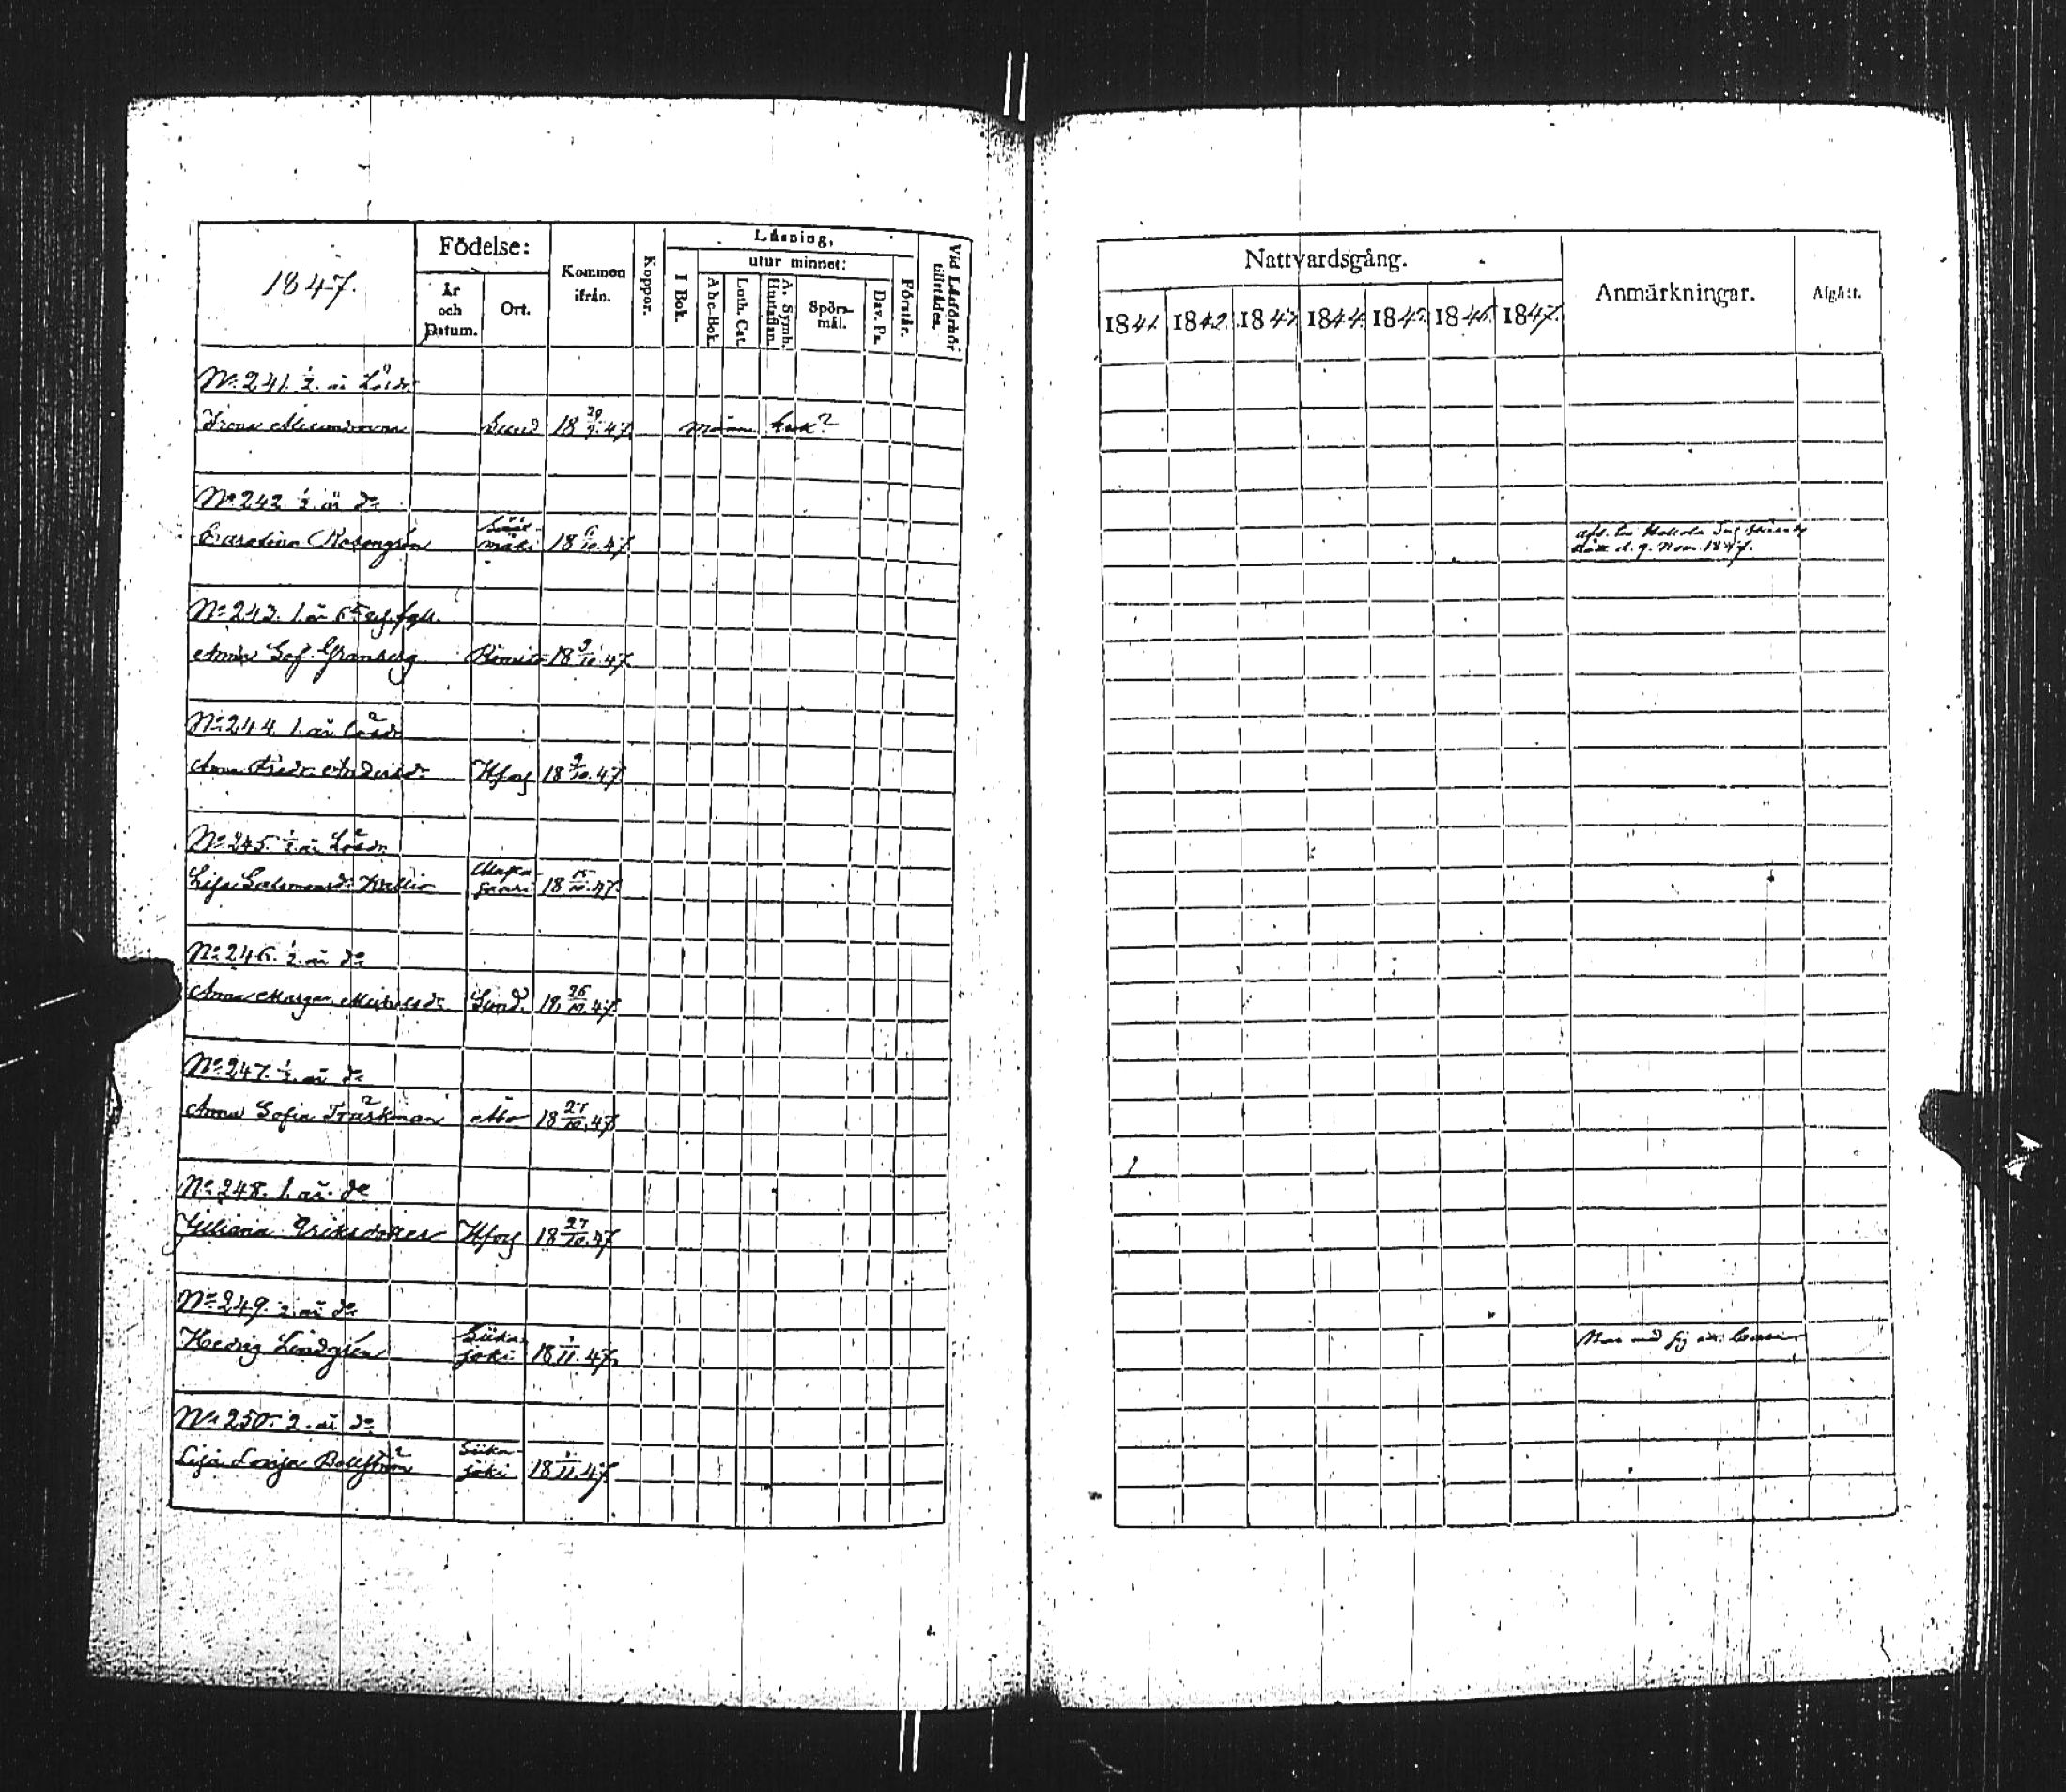 1847.
Födelse:
År och Datum.
Ort.
Kommen ifrån.
Koppor.
Läsning,
utur minnet:
I Bok.
Abc-Bok.
Luth. Cat.
A. Symb. Hustaflan.
Spörsmål.
Dav. Ps.
Förstår.
Vid Läsförhör tillstädes.
No 241. ½. år Lösdr
Sund 18 29/9. 47.
No 242. ½. år do
Carolina Rosengrén Sääxmäki 18 6/10. 47
No 243. 1. år
Anna Sof. Granberg Rimito 18 9/10. 47
No 244. 1. år Lösdr
Anna Fredr. Andersdr Hfors 18 9/10. 47
No 245. ½. år Lösdr
Lisa Salomonsdr Kallio 18 15/10. 47.
No 246. ½. år do
Anna Margar. Michelsdr Sund. 18 26/10. 47.
No 247. ½. år do
Anna Sofia Träskman Åbo 18 27/10. 47
No 248. 1. år. do
Juliana Eriksdotter Hfors 18 27/10. 47
No 249. 2. år do
Hedvig Lindgrén Siikajoki 18 1/11. 47.
No 250. 2. år do
Lisa Lovisa Siikajoki 18 1/11. 47.
Nattvardsgång.
Anmärkningar.
Afgått.
1841. 1842. 1843 1844. 1845. 1846. 1847.
d. 9. Nov. 1847.